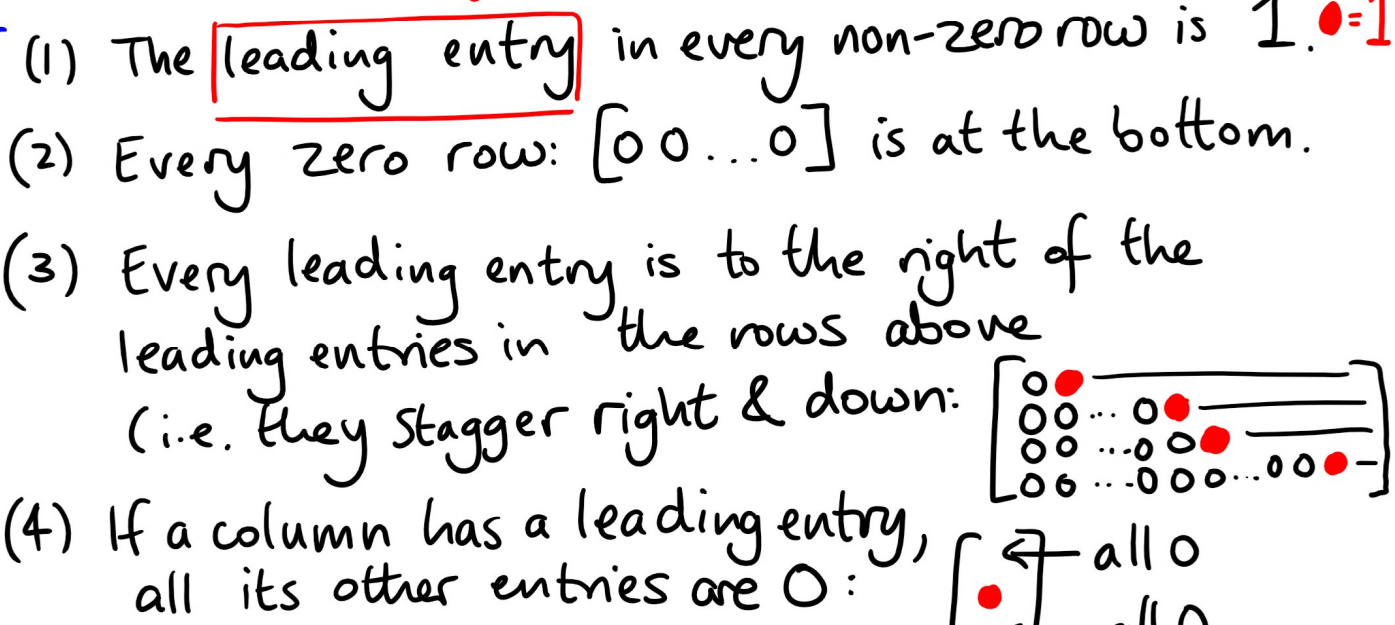 (1) The leading entry in every non-zero row is 1. ●=1
(2) Every zero row: [0 0 ... 0] is at the bottom.
(3) Every leading entry is to the right of the
leading entries in the rows above
(i.e. they stagger right & down:
[0 ●
0 0 ... 0 ●
0 0 ... 0 0 ●
0 0 ... 0 0 0 ... 0 0 ● ]
(4) If a column has a leading entry,
all its other entries are 0:
[ ● ] ← all 0
all 0